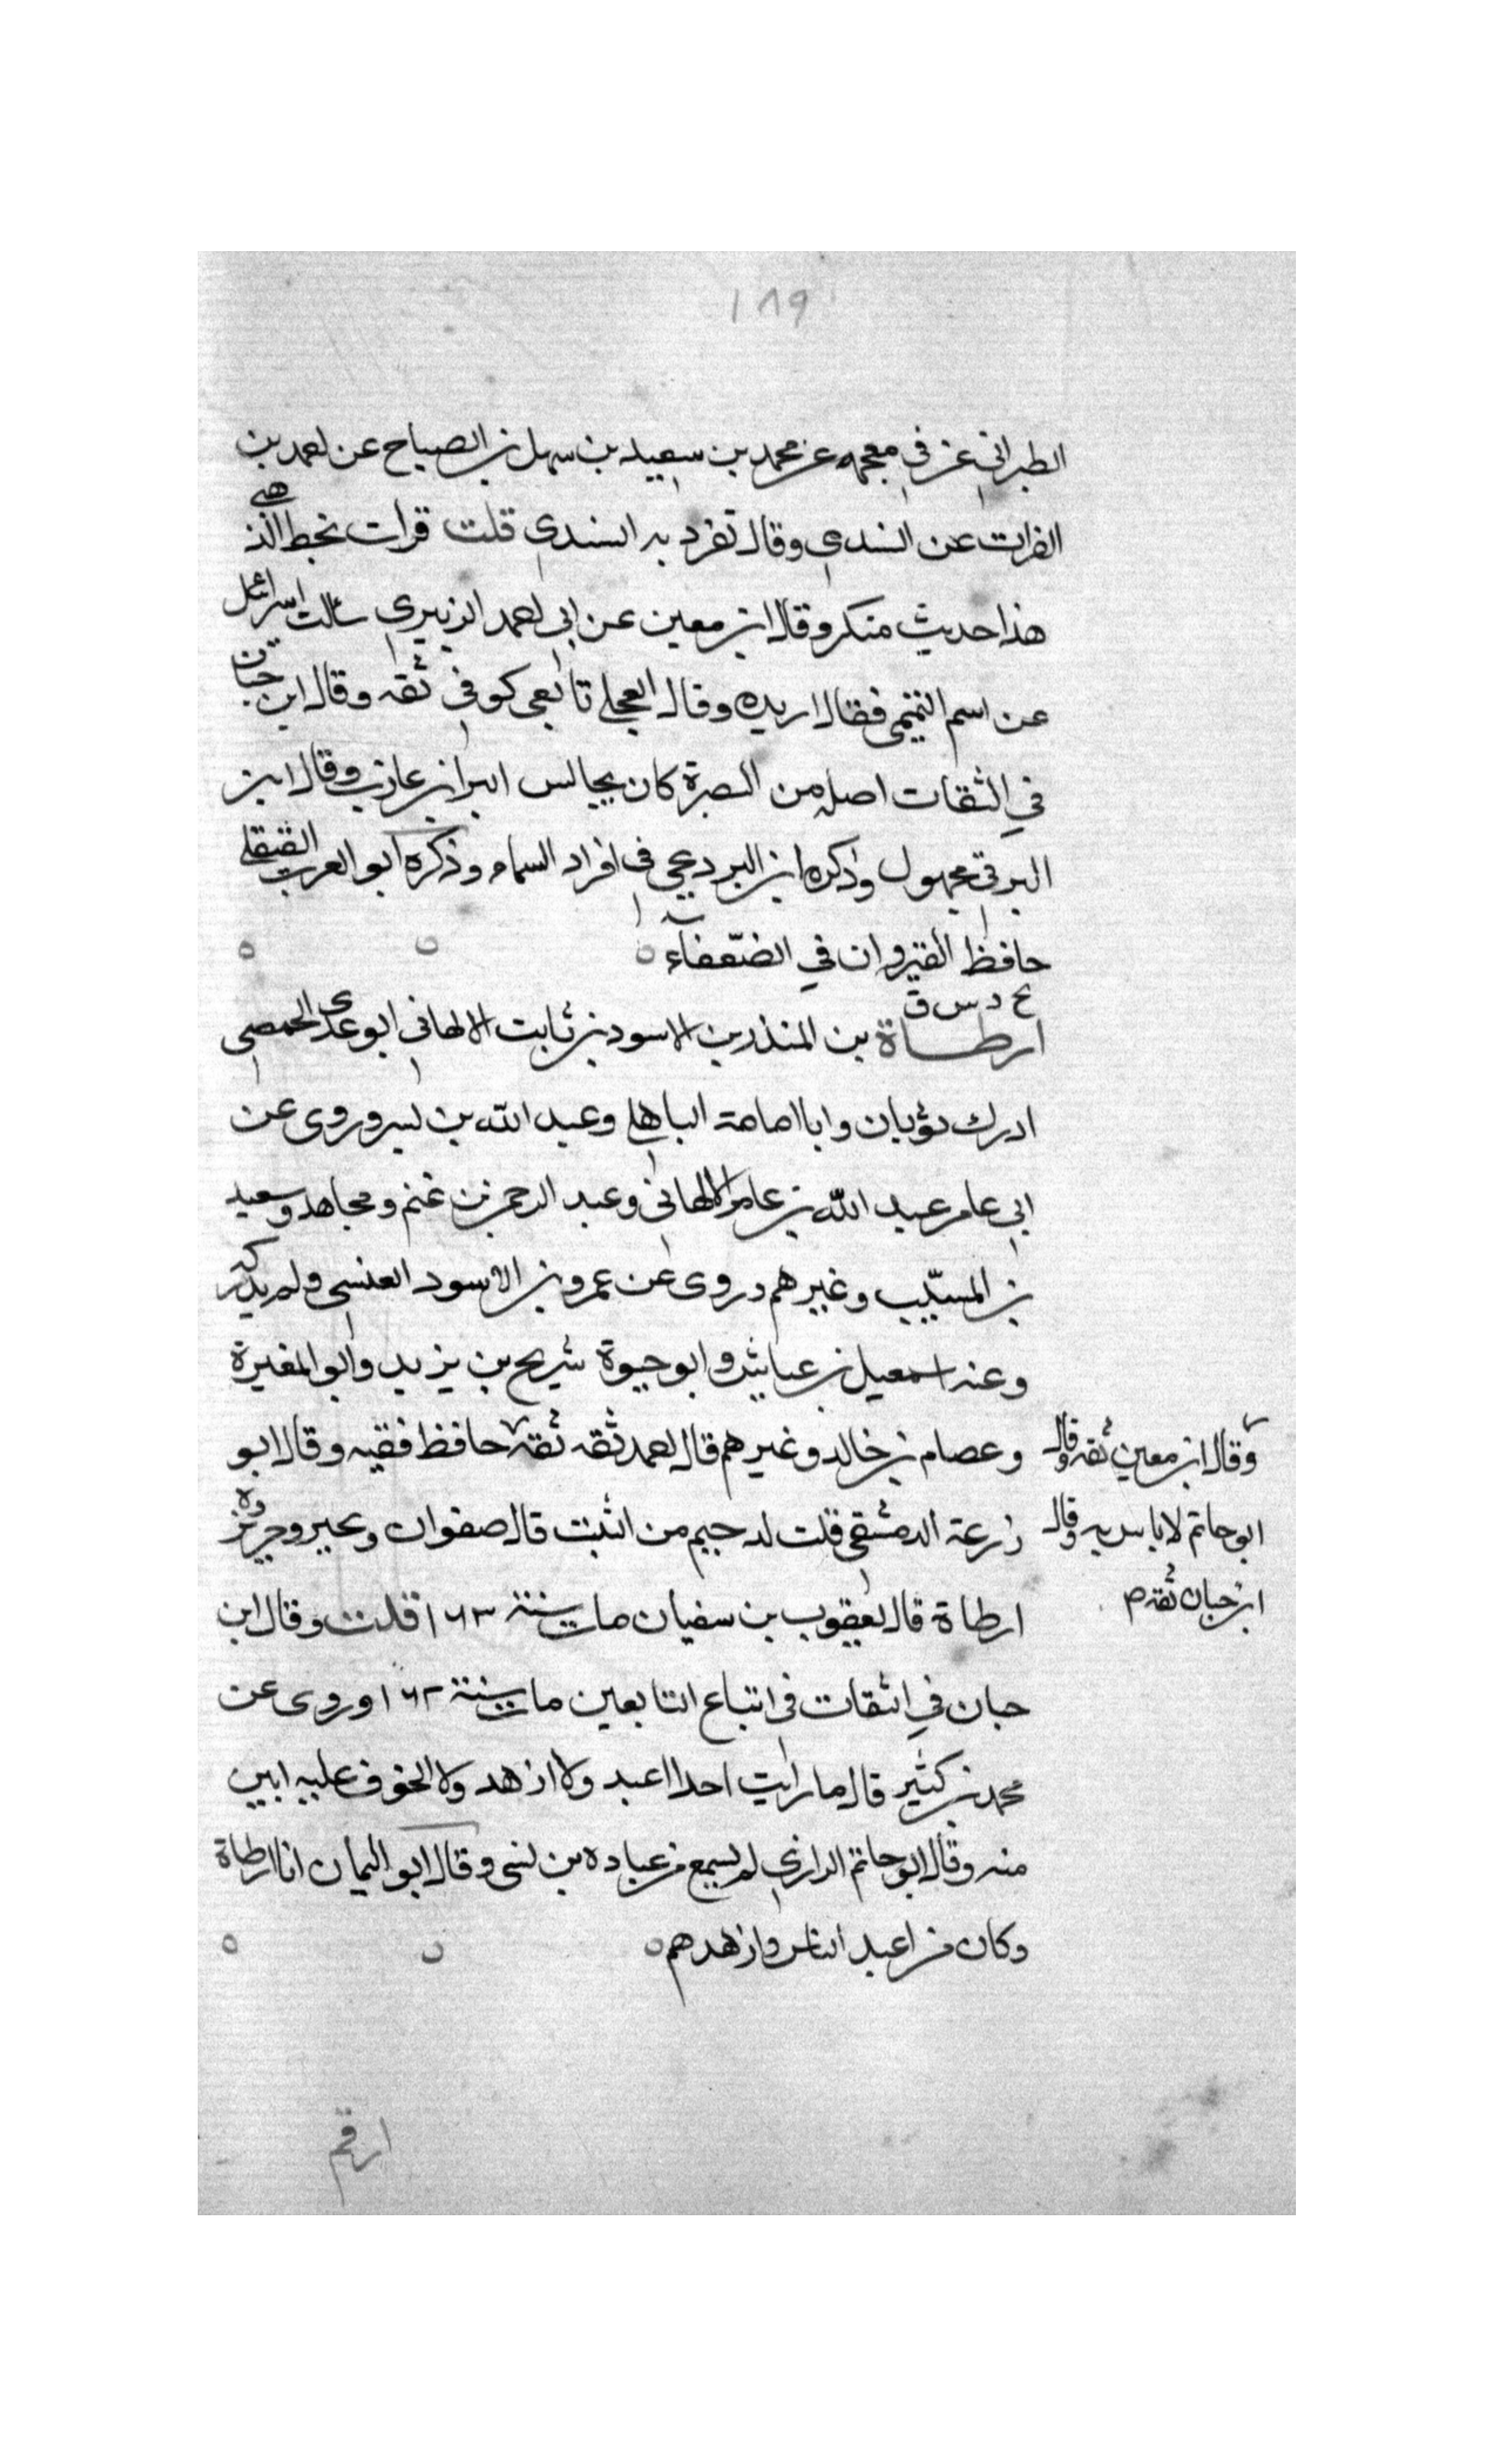 ١٨٩
الطبراني عن في معجمه عن محمد بن سعيد بن سهل بن الصباح عن احمد بن
الفرات عن السندي وقال تفرد به السندي قلت قرات بخط الذهبي
هذا حديث منكر وقال ابن معين عن ابي احمد الزبيري سالت اسرائيل
عن اسم التميمي فقال اربده وقال العجلي تابعي كوفي ثقه وقال ابن حبان
في الثقات اصله من البصرة كان يجالس البرا بن عازب وقال ابن
البرقي مجهول وذكره ابن البرديجي في افراد الاسماء وذكره ابو العرب الصقلي
حافظ القيروان في الضعفاء
خ د س ق
ارطاة بن المنذر بن الاسود بن ثابت الالهاني ابو عدي الحمصي
ادرك ثوبان وابا امامة الباهلي وعبد الله بن بسر وروى عن
ابي عامر عبد الله بن عامر الالهاني وعبد الرحمن بن غنم ومجاهد وسعيد
بن المسيب وغيرهم وروى عن عمرو بن الاسود العنسي ولم يدركه
وعنه اسمعيل بن عياش وابو حيوة شريح بن يزيد وابو المغيرة
وعصام بن خالد وغيرهم قال احمد ثقه ثقه حافظ فقيه وقال ابو
زرعة الدمشقي قلت لدحيم من الثبت قال صفوان وبحير وحريز و
ارطاة قال يعقوب بن سفيان مات سنة ١٦٣ قلت وقال ابن
حبان في الثقات في اتباع التابعين مات سنة ١٦٢ وروى عن
محمد بن كثير قال ما رايت احدا اعبد ولا ازهد ولا الخوف عليه ابين
منه وقال ابو حاتم الرازي لم يسمع من عباده بن نسي وقال ابو اليمان انا ارطاة
وكان من اعبد الناس وازهدهم
وقال ابن معين ثقه وقال
ابو حاتم لا باس به وقال
ابن حبان ثقه م
ارقم